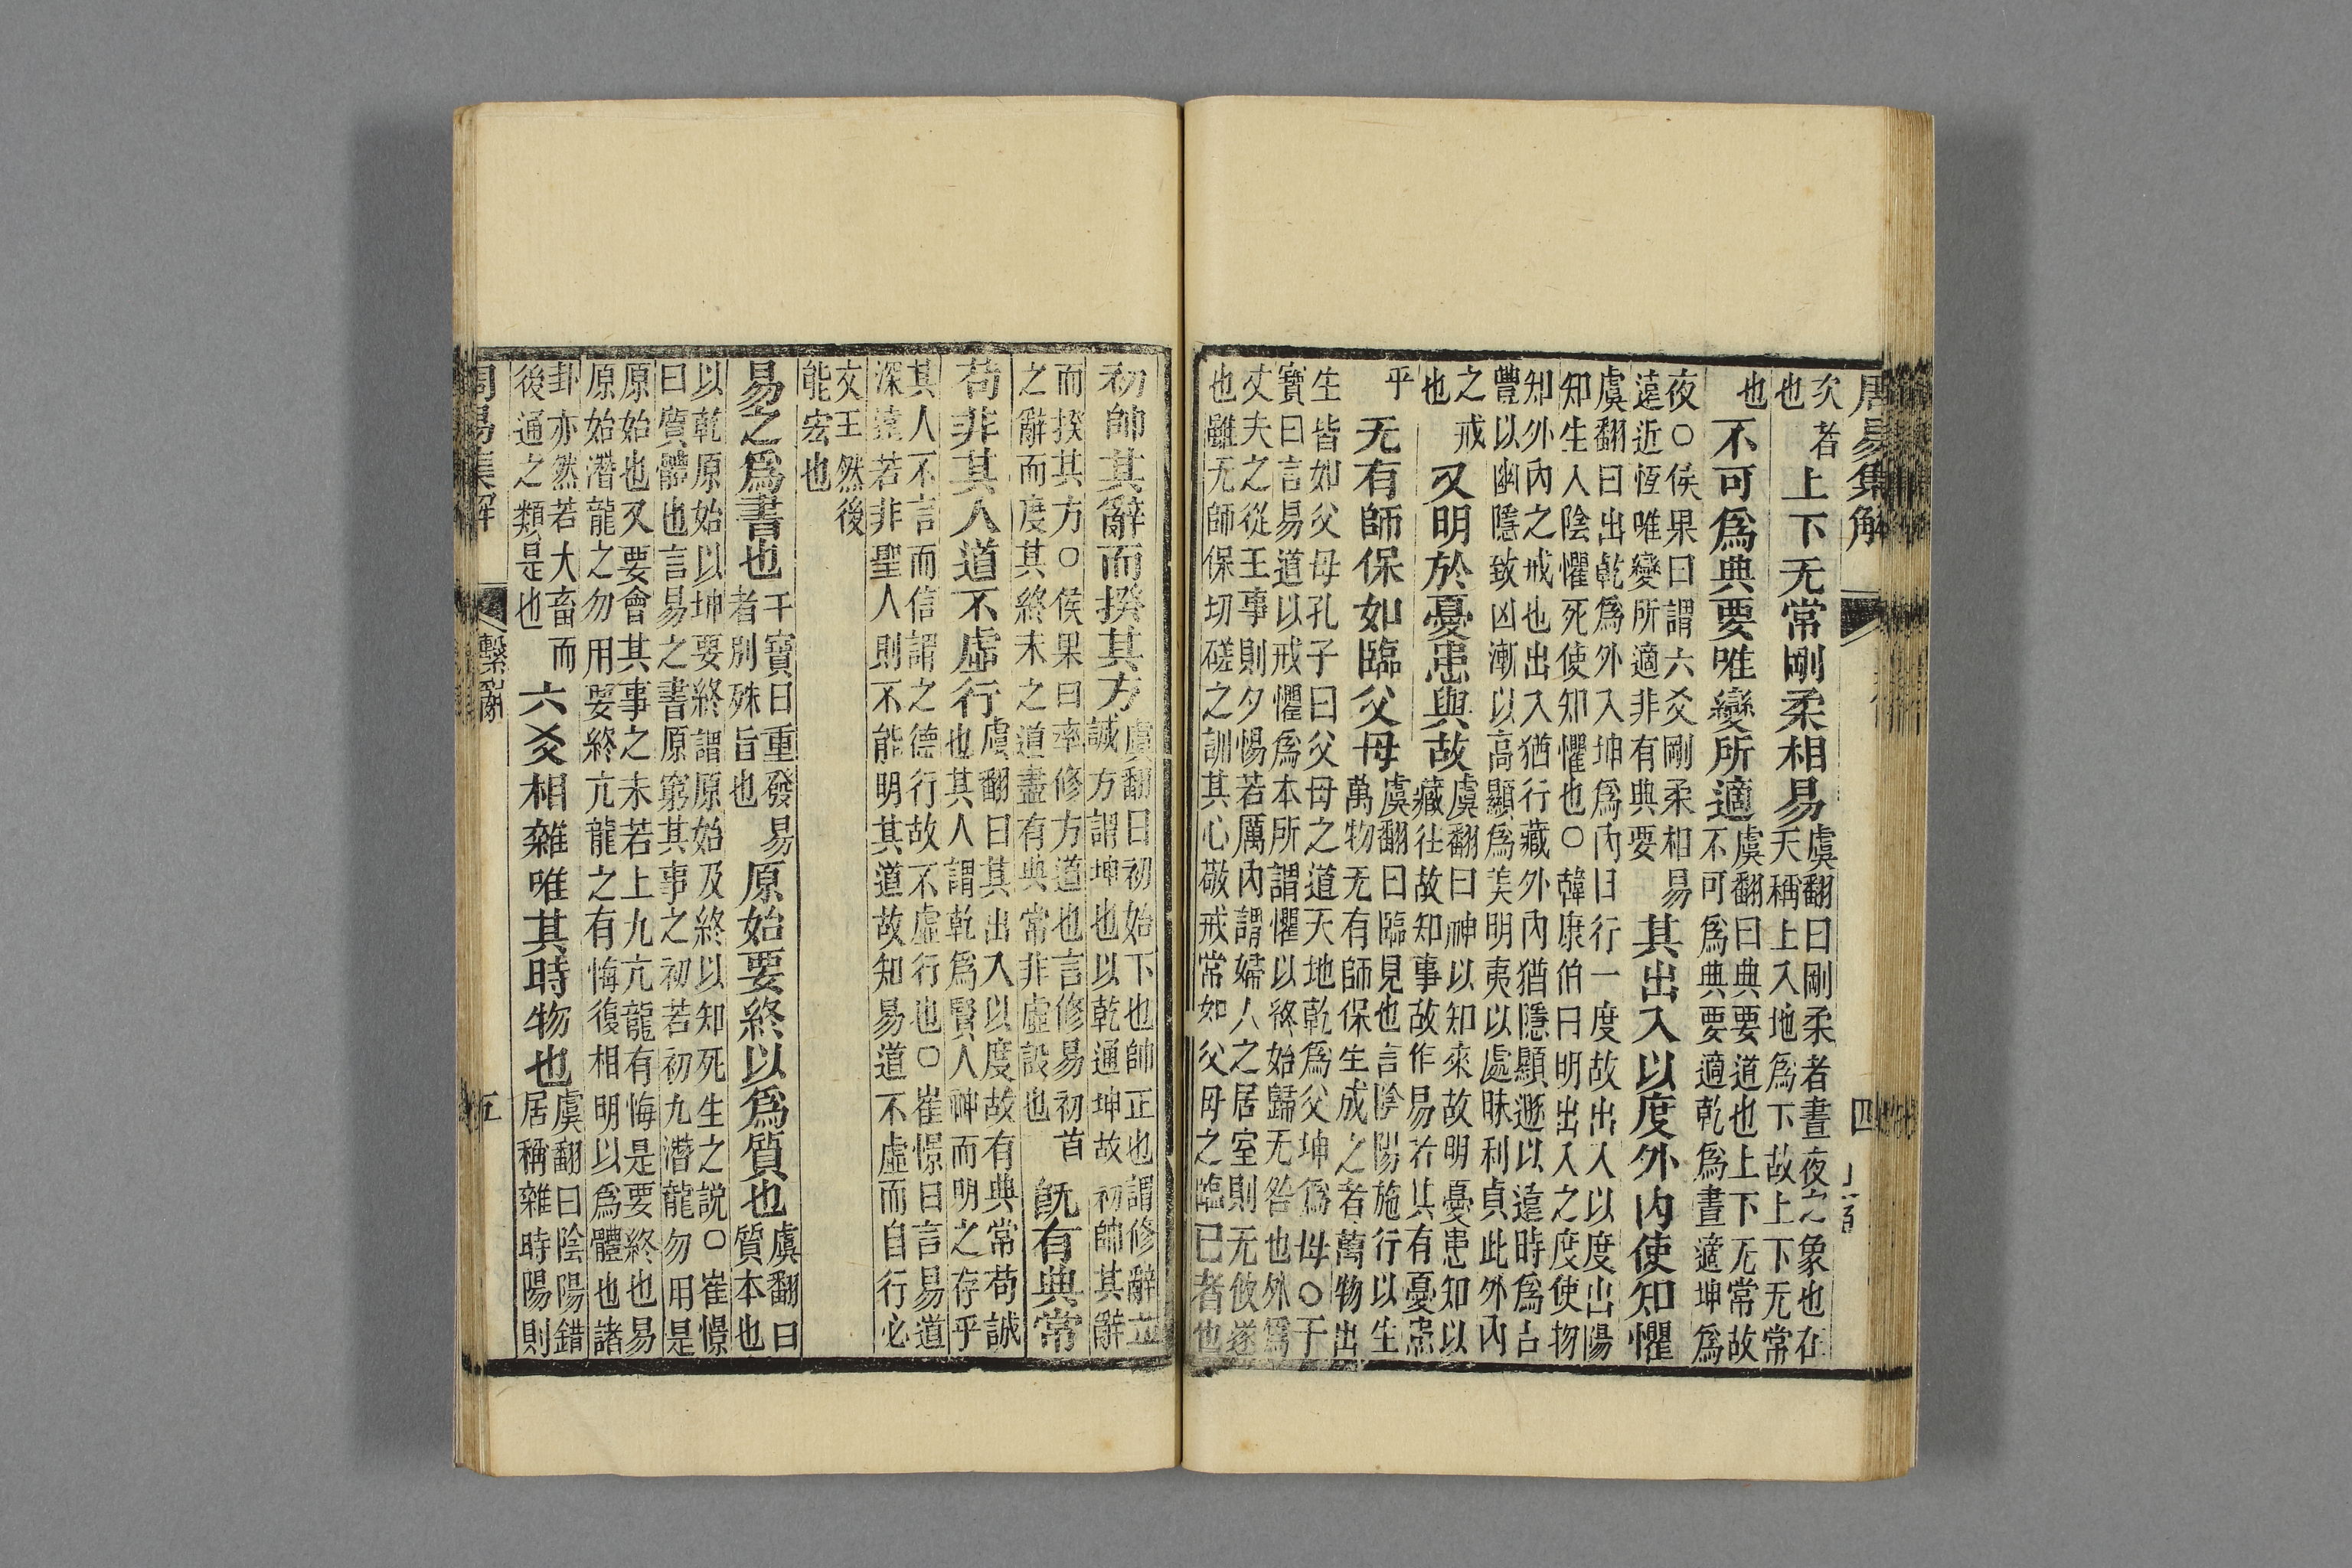 周易集解 四
爻者也上下无常剛柔相易虞翻曰剛柔者晝夜之象也在天稱上入地爲下故上下无常
也不可爲典要唯變所適虞翻曰典要道也上下无常故不可爲典要適乾爲晝適坤爲
夜○侯果曰謂六爻剛柔相易遠近恆唯變所適非有典要其出入以度外内使知懼
虞翻曰出乾爲外入坤爲内日行一度故出入以度出陽知生入陰懼死使知懼也○韓康伯曰明出入之度使物
知外内之戒也出入猶行藏外内猶隱顯遯以遠時爲吉豐以幽隱致凶漸以高顯爲美明夷以處昧利貞此外内
之戒也又明於憂患與故虞翻曰神以知來故明憂患知以藏往故知事故作易者其有憂患
乎无有師保如臨父母虞翻曰臨見也言陰陽施行以生萬物无有師保生成之者萬物出
生皆如父母孔子曰父母之道天地乾爲父坤爲母○干寶曰言易道以戒懼爲本所謂懼以終始歸无咎也外爲
丈夫之從王事則夕惕若厲内謂婦人之居室則无攸遂也雖无師保切磋之訓其心敬戒常如父母之臨已者也
初帥其辭而揆其方虞翻曰初始下也帥正也謂修辭立誠方謂坤也以乾通坤故初帥其辭
而揆其方○侯果曰率修方道也言修易初首之辭而度其終末之道盡有典常非虛設也旣有典常
苟非其人道不虛行虞翻曰其出入以度故有典常苟誠也其人謂乾爲賢人神而明之存乎
其人不言而信謂之德行故不虛行也○崔憬曰言易道深遠若非聖人則不能明其道故知易道不虛而自行必
文王然後能宏也
易之爲書也干寶曰重發易者別殊旨也原始要終以爲質也虞翻曰質本也
以乾原始以坤要終謂原始及終以知死生之説○崔憬曰質體也言易之書原窮其事之初若初九潛龍勿用是
原始也又要會其事之末若上九亢龍有悔是要終也易原始潛龍之勿用要終亢龍之有悔復相明以爲體也諸
卦亦然若大畜而後通之類是也六爻相雜唯其時物也虞翻曰陰陽錯居稱雜時陽則
周易集解 繫辭 五